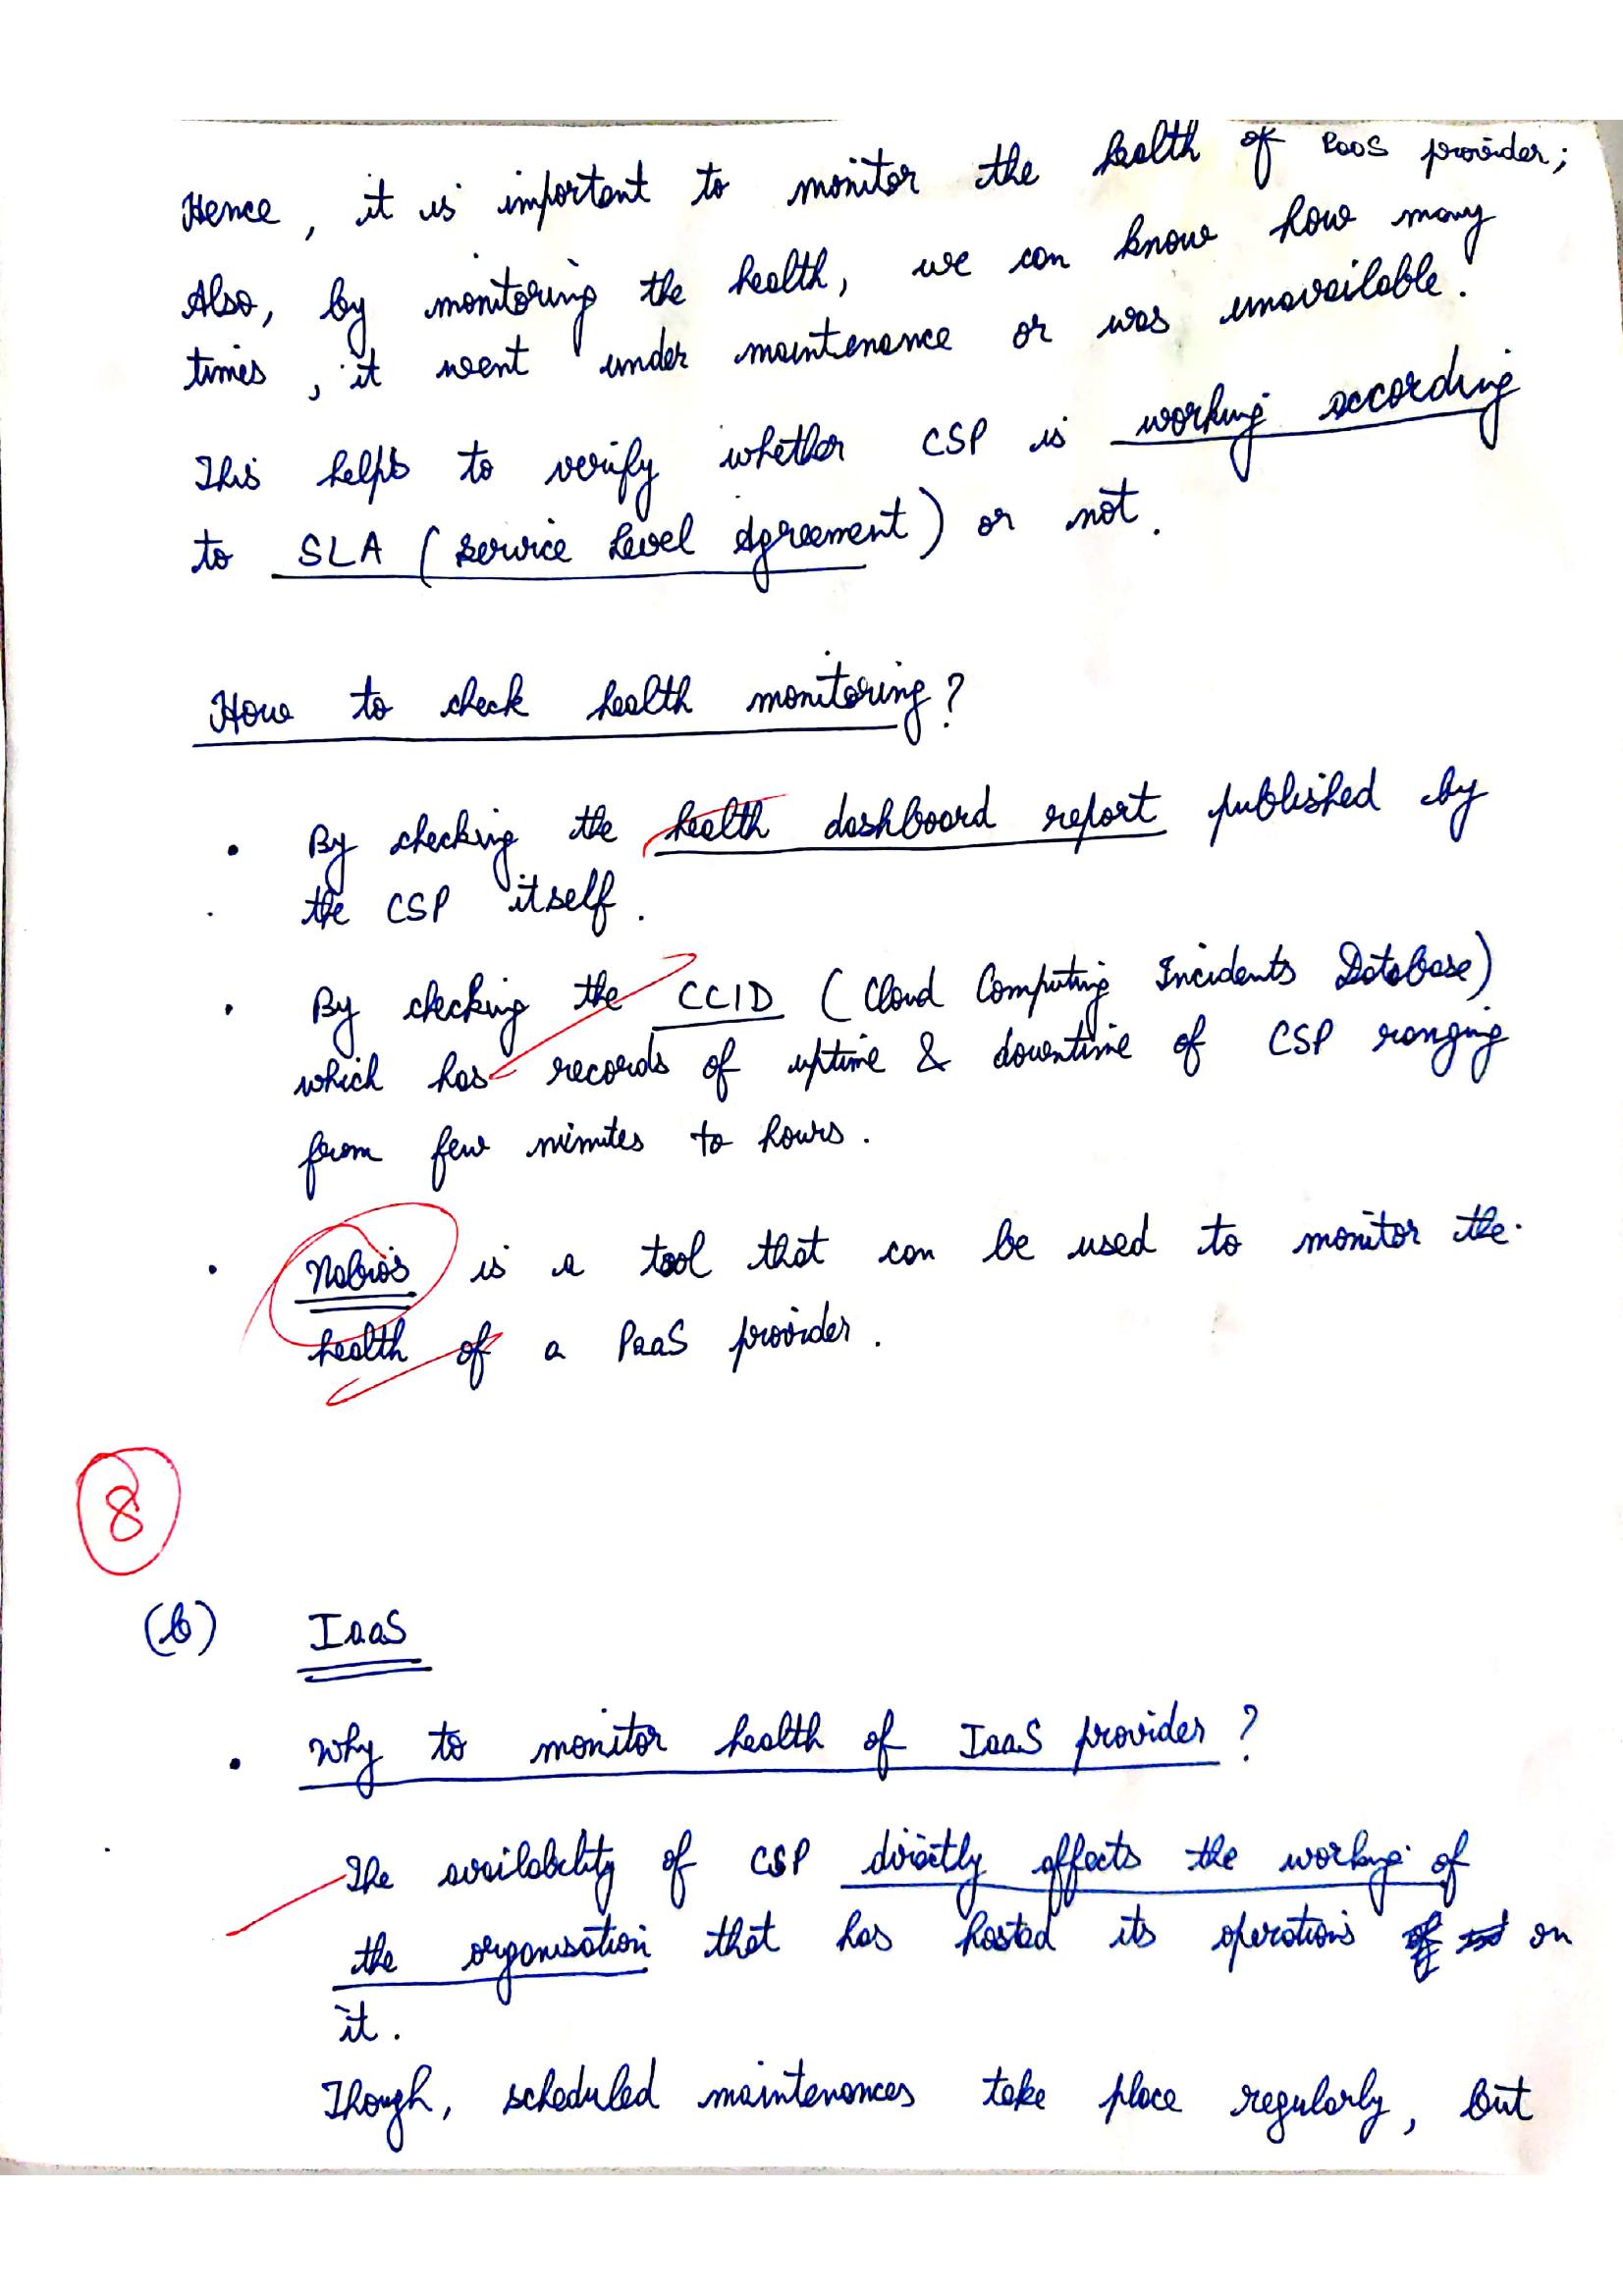 Hence, it is important to monitor the health of PaaS provider;
Also, by monitoring the health, we can know how many
times, it went under maintenance or was unavailable.
This helps to verify whether CSP is working according
to SLA (Service Level Agreement) or not.
How to check health monitoring?
• By checking the health dashboard report published by
the CSP itself.
• By checking the CCID (Cloud Computing Incidents Database)
which has records of uptime & downtime of CSP ranging
from few minutes to hours.
• is a tool that can be used to monitor the
health of a PaaS provider.
8
(b) IaaS
• Why to monitor health of IaaS provider?
The availability of CSP directly affects the working of
the organisation that has hosted its operations on
it.
Though, scheduled maintenances take place regularly, but